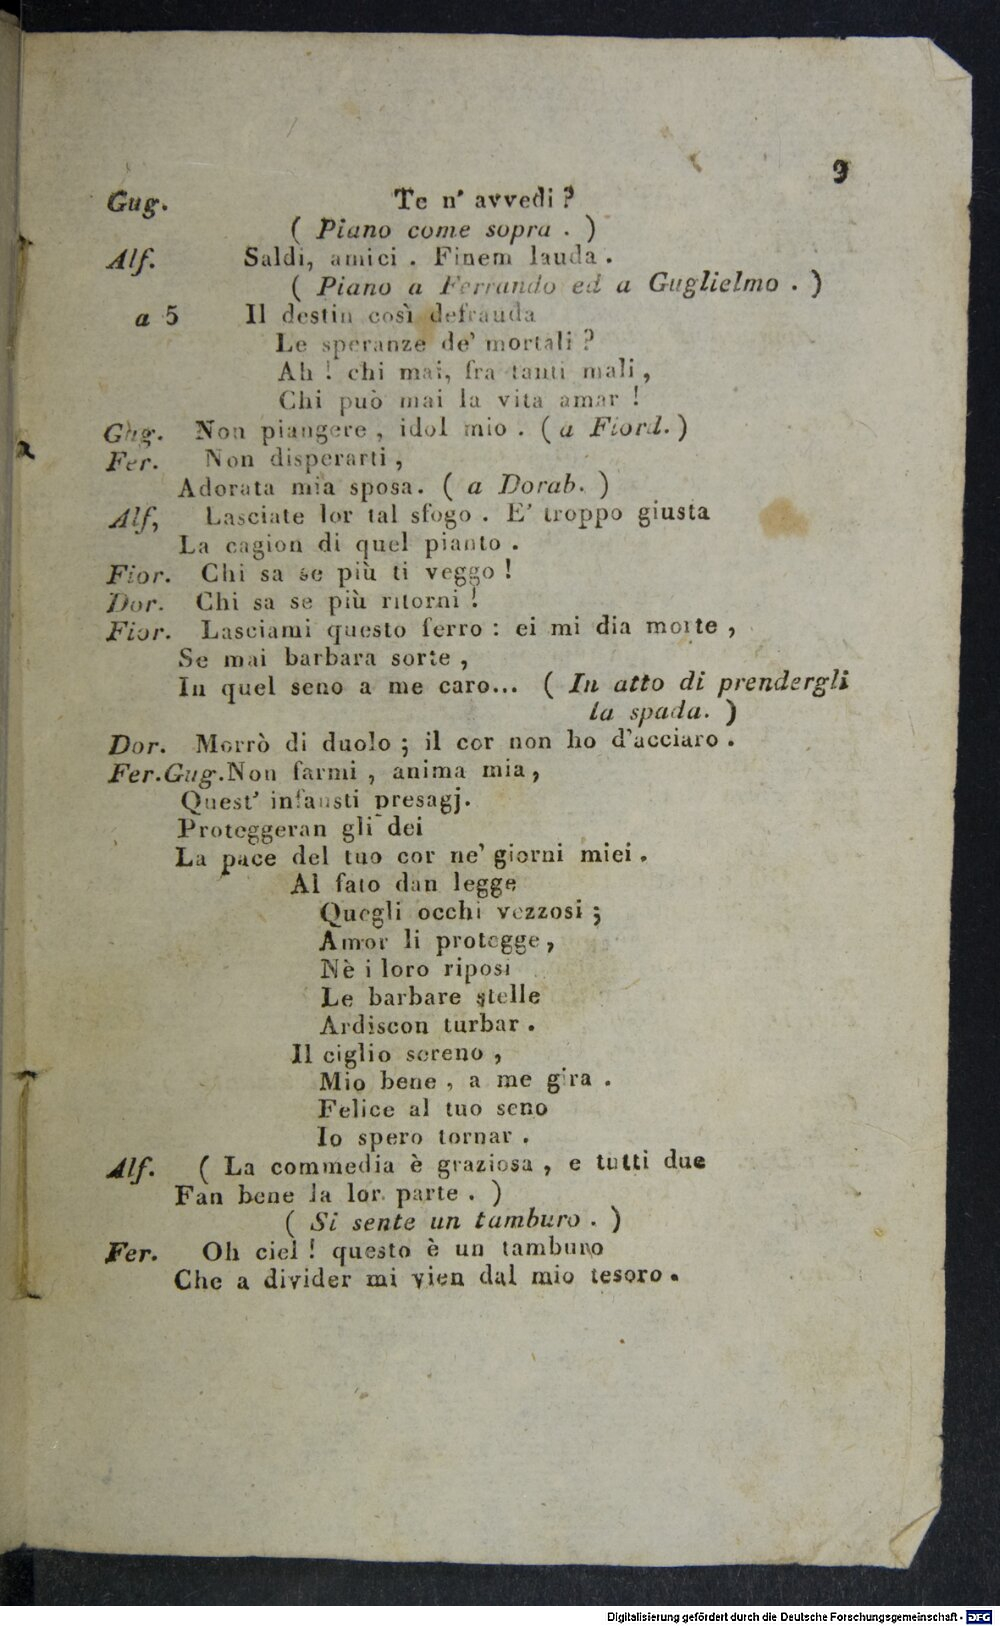 9
Gug. Te n' avvedi ?
( Piano come sopra . )
Alf. Saldi, amici . Finem lauda .
( Piano a Ferrando ed a Guglielmo . )
a 5 Il destin così defrauda
Le speranze de' mortali ?
Ah ! chi mai, fra tanti mali ,
Chi può mai la vita amar !
Gug. Non piangere , idol mio . ( a Fiord. )
Fer. Non disperarti ,
Adorata mia sposa. ( a Dorab. )
Alf, Lasciate lor tal sfogo . E' troppo giusta
La cagion di quel pianto .
Fior. Chi sa se più ti veggo !
Dor. Chi sa se più ritorni !
Fior. Lasciami questo ferro : ei mi dia morte ,
Se mai barbara sorte ,
In quel seno a me caro... ( In atto di prendergli
la spada. )
Dor. Morrò di duolo ; il cor non ho d'acciaro .
Fer. Gug. Non farmi , anima mia ,
Quest' infausti presagj.
Proteggeran gli dei
La pace del tuo cor ne' giorni miei .
Al fato dan legge
Quegli occhi vezzosi ;
Amor li protegge ,
Nè i loro riposi
Le barbare stelle
Ardiscon turbar .
Il ciglio sereno ,
Mio bene , a me gira .
Felice al tuo seno
Io spero tornar .
Alf. ( La commedia è graziosa , e tutti due
Fan bene la lor parte . )
( Si sente un tamburo . )
Fer. Oh ciel ! questo è un tamburo
Che a divider mi vien dal mio tesoro .
Digitalisierung gefördert durch die Deutsche Forschungsgemeinschaft - DFG